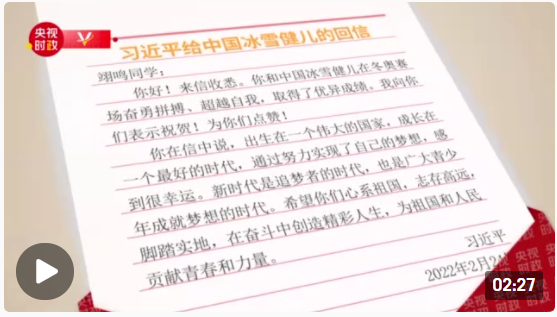 央视
时政
习近平给中国冰雪健儿的回信
翊鸣同学：
你好！来信收悉。你和中国冰雪健儿在冬奥赛
场奋勇拼搏、超越自我，取得了优异成绩。我向你
们表示祝贺！为你们点赞！
你在信中说，出生在一个伟大的国家，成长在
一个最好的时代，通过努力实现了自己的梦想，感
到很幸运。新时代是追梦者的时代，也是广大青少
年成就梦想的时代。希望你们心系祖国，志存高远，
脚踏实地，在奋斗中创造精彩人生，为祖国和人民
贡献青春和力量。
习近平
2022年2月24
央视
时政
02:27